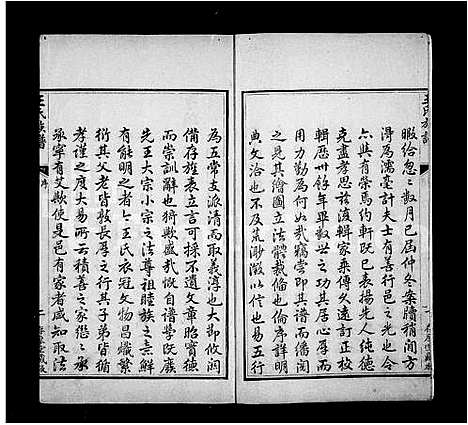 王氏族譜
暇給忽二數月已屆仲冬案牘稍閒方
為濡毫計夫士有善行邑之光也今
六與有榮焉約軒既已表揚先人純德
克盡孝思茲復輯家乘傳久遠訂正校
輯歷卅餘年畢數世之功其居心忠厚
用力勤為何如武竊嘗即其譜而繙閱
之見其繪圖立法體裁倫也倫序詳明
典文洽也不及荒渺激以信也易五行
為五常支派清而取義淳也大而
備存旌表立言可採不遺文章貽實德
而崇訓辭也猗歟盛哉恢自譜學既廢
先王大宗小宗之法尊祖睦族之意鮮
有能明之者今王氏衣冠文物昌熾繁
衍其父老皆敦長厚之行其子弟皆循
孝謹之度大易所云積善之家徵之承
承寧有艾歟使是邑有家者咸知取法
王氏族譜
序